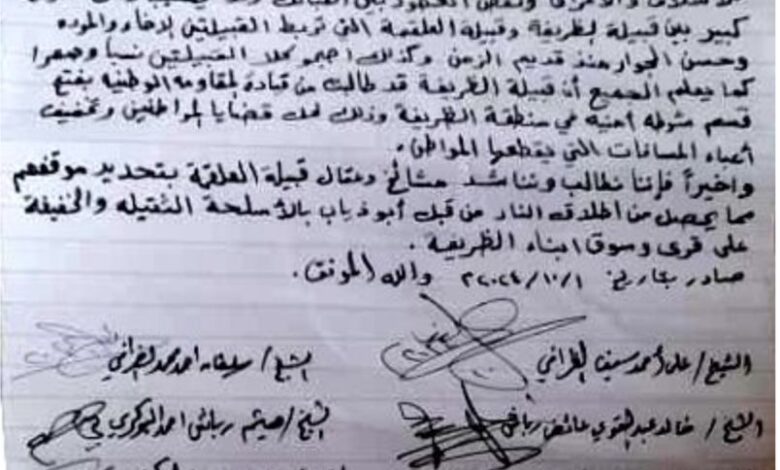 كبير بين قبيلة الظريفة وقبيلة العلقمة التي تربط القبيلتين لإخاء والموده
وحسن الجوار منذ قديم الزمن وكذلك كلا القبيلتين نسبا وصهرا
كما يعلم الجميع أن قبيلة الظريفة قد طالبت من قيادة المقاومه الوطنيه بفتح
قسم شرطه أمنيه في منطقة الظريفة وذلك لحل قضايا المواطنين وتخفيف
أعباء المسافات التي يقطعها المواطن.
واخيراً فإننا نطالب ونناشد مشائخ وعقال قبيلة العلقمة بتحديد موقفهم
مما يحصل من اطلاق النار من قبل أبو ذياب بالأسلحة الثقيله والخفيفة
على قرى وسوق ابناء الظريفة.
صادر بتاريخ ٢٠٢٤/١٠/١ والله الموفق.
الشيخ/ علي أحمد سيف
الشيخ/ احمد محمد
الشيخ/ خالد عبدالقوي عائض
الشيخ/ هيثم احمد